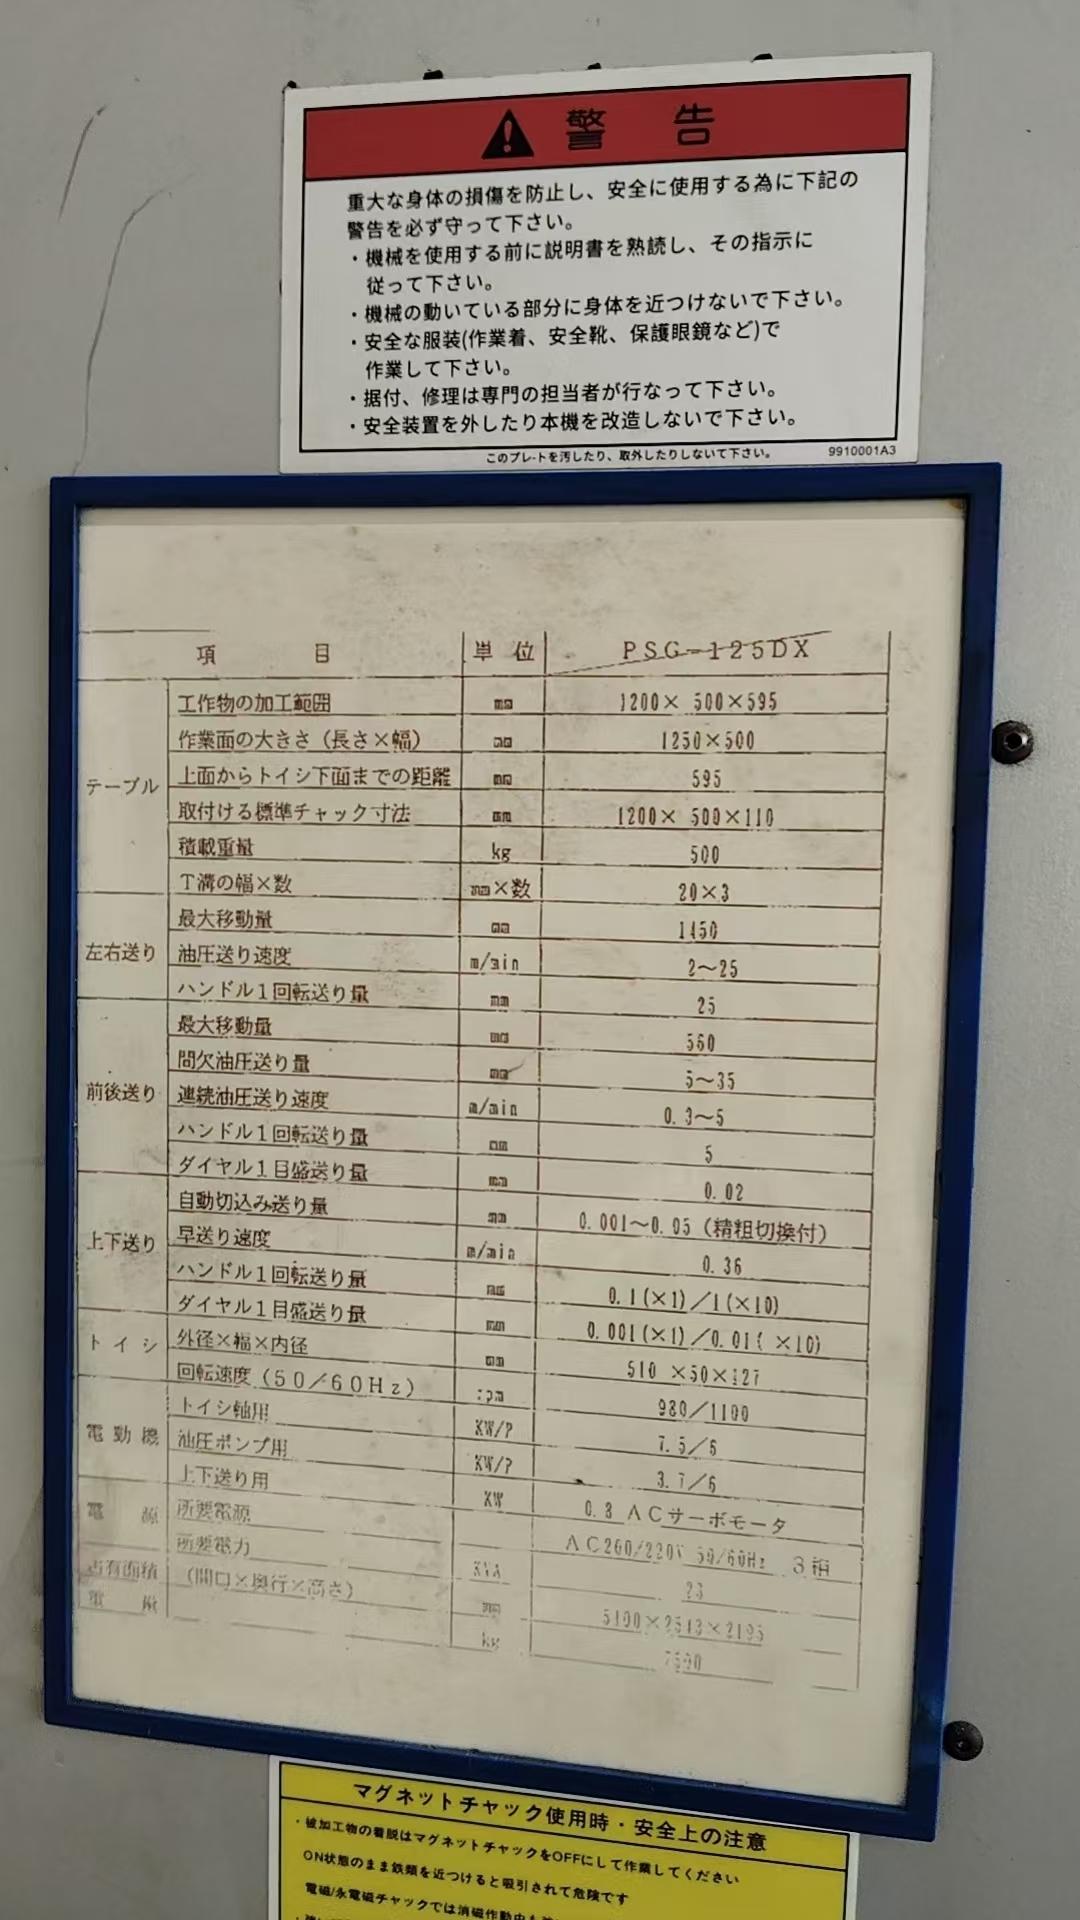 警告
重大な身体の損傷を防止し、安全に使用する為に下記の
警告を必ず守って下さい。
・機械を使用する前に説明書を熟読し、その指示に
従って下さい。
・機械の動いている部分に身体を近つけないで下さい。
・安全な服装(作業着、安全靴、保護眼鏡など)で
作業して下さい。
・据付、修理は専門の担当者が行なって下さい。
・安全装置を外したり本機を改造しないで下さい。
このプレートを汚したり、取外したりしないで下さい。 9910001A3
項目 単位 PSG-125DX
テーブル
工作物の加工範囲 mm 1200× 500×595
作業面の大きさ(長さ×幅) mm 1250×500
上面からトイシ下面までの距離 mm 595
取付ける標準チャック寸法 mm 1200× 500×110
積載重量 kg 500
T溝の幅×数 mm×数 20×3
左右送り
最大移動量 mm 1450
油圧送り速度 m/min 2～25
ハンドル1回転送り量 mm 25
前後送り
最大移動量 mm 560
間欠油圧送り量 mm 5～35
連続油圧送り速度 m/min 0.3～5
ハンドル1回転送り量 mm 5
ダイヤル1目盛送り量 mm 0.02
上下送り
自動切込み送り量 mm 0.001～0.05(精粗切換付)
早送り速度 m/min 0.36
ハンドル1回転送り量 mm 0.1(×1)/1(×10)
ダイヤル1目盛送り量 mm 0.001(×1)/0.01( ×10)
トイシ
外径×幅×内径 mm 510 ×50×127
回転速度(50/60Hz) rpm 980/1100
電動機
トイシ軸用 KW/P 7.5/6
油圧ポンプ用 KW/P 3.7/6
上下送り用 KW 0.8 ACサーボモータ
電源
所要電源 AC200/220V 50/60Hz 3相
所要電力 KVA
占有面積 (間口×奥行×高さ) mm
kg
マグネットチャック使用時・安全上の注意
・被加工物の着脱はマグネットチャックをOFFにして作業してください
ON状態のまま鉄類を近つけると吸引されて危険です
電磁/永電磁チャックでは消磁作動中も